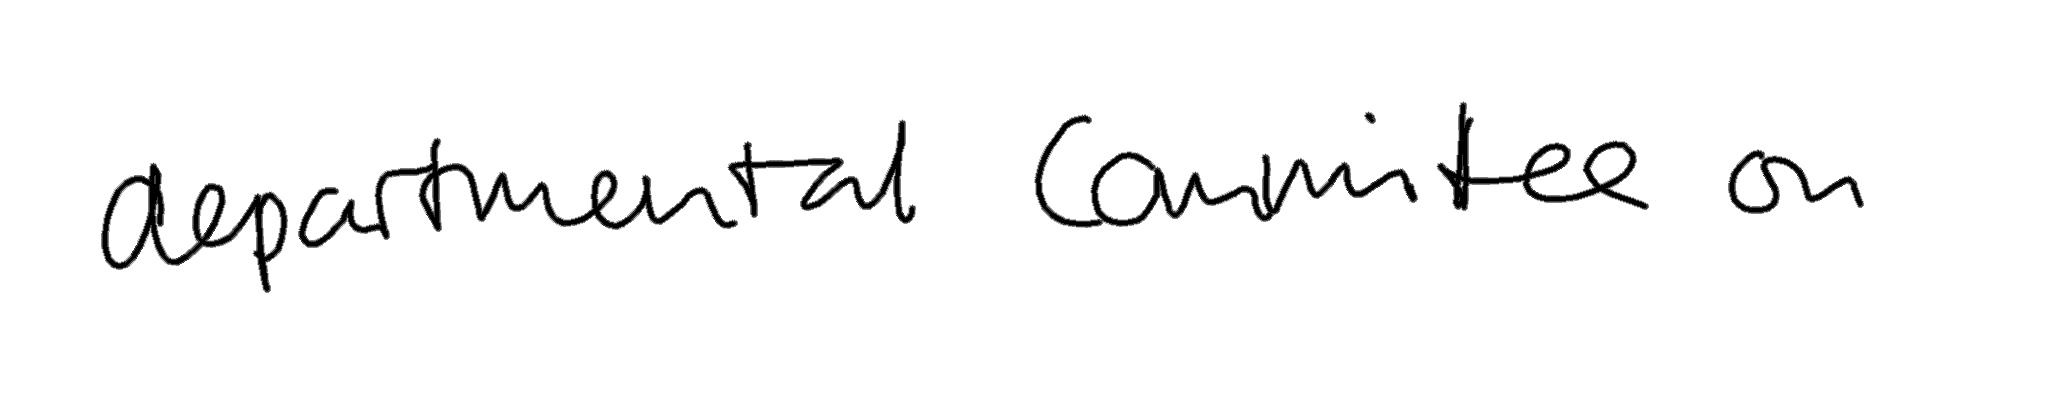 departmental Committee on